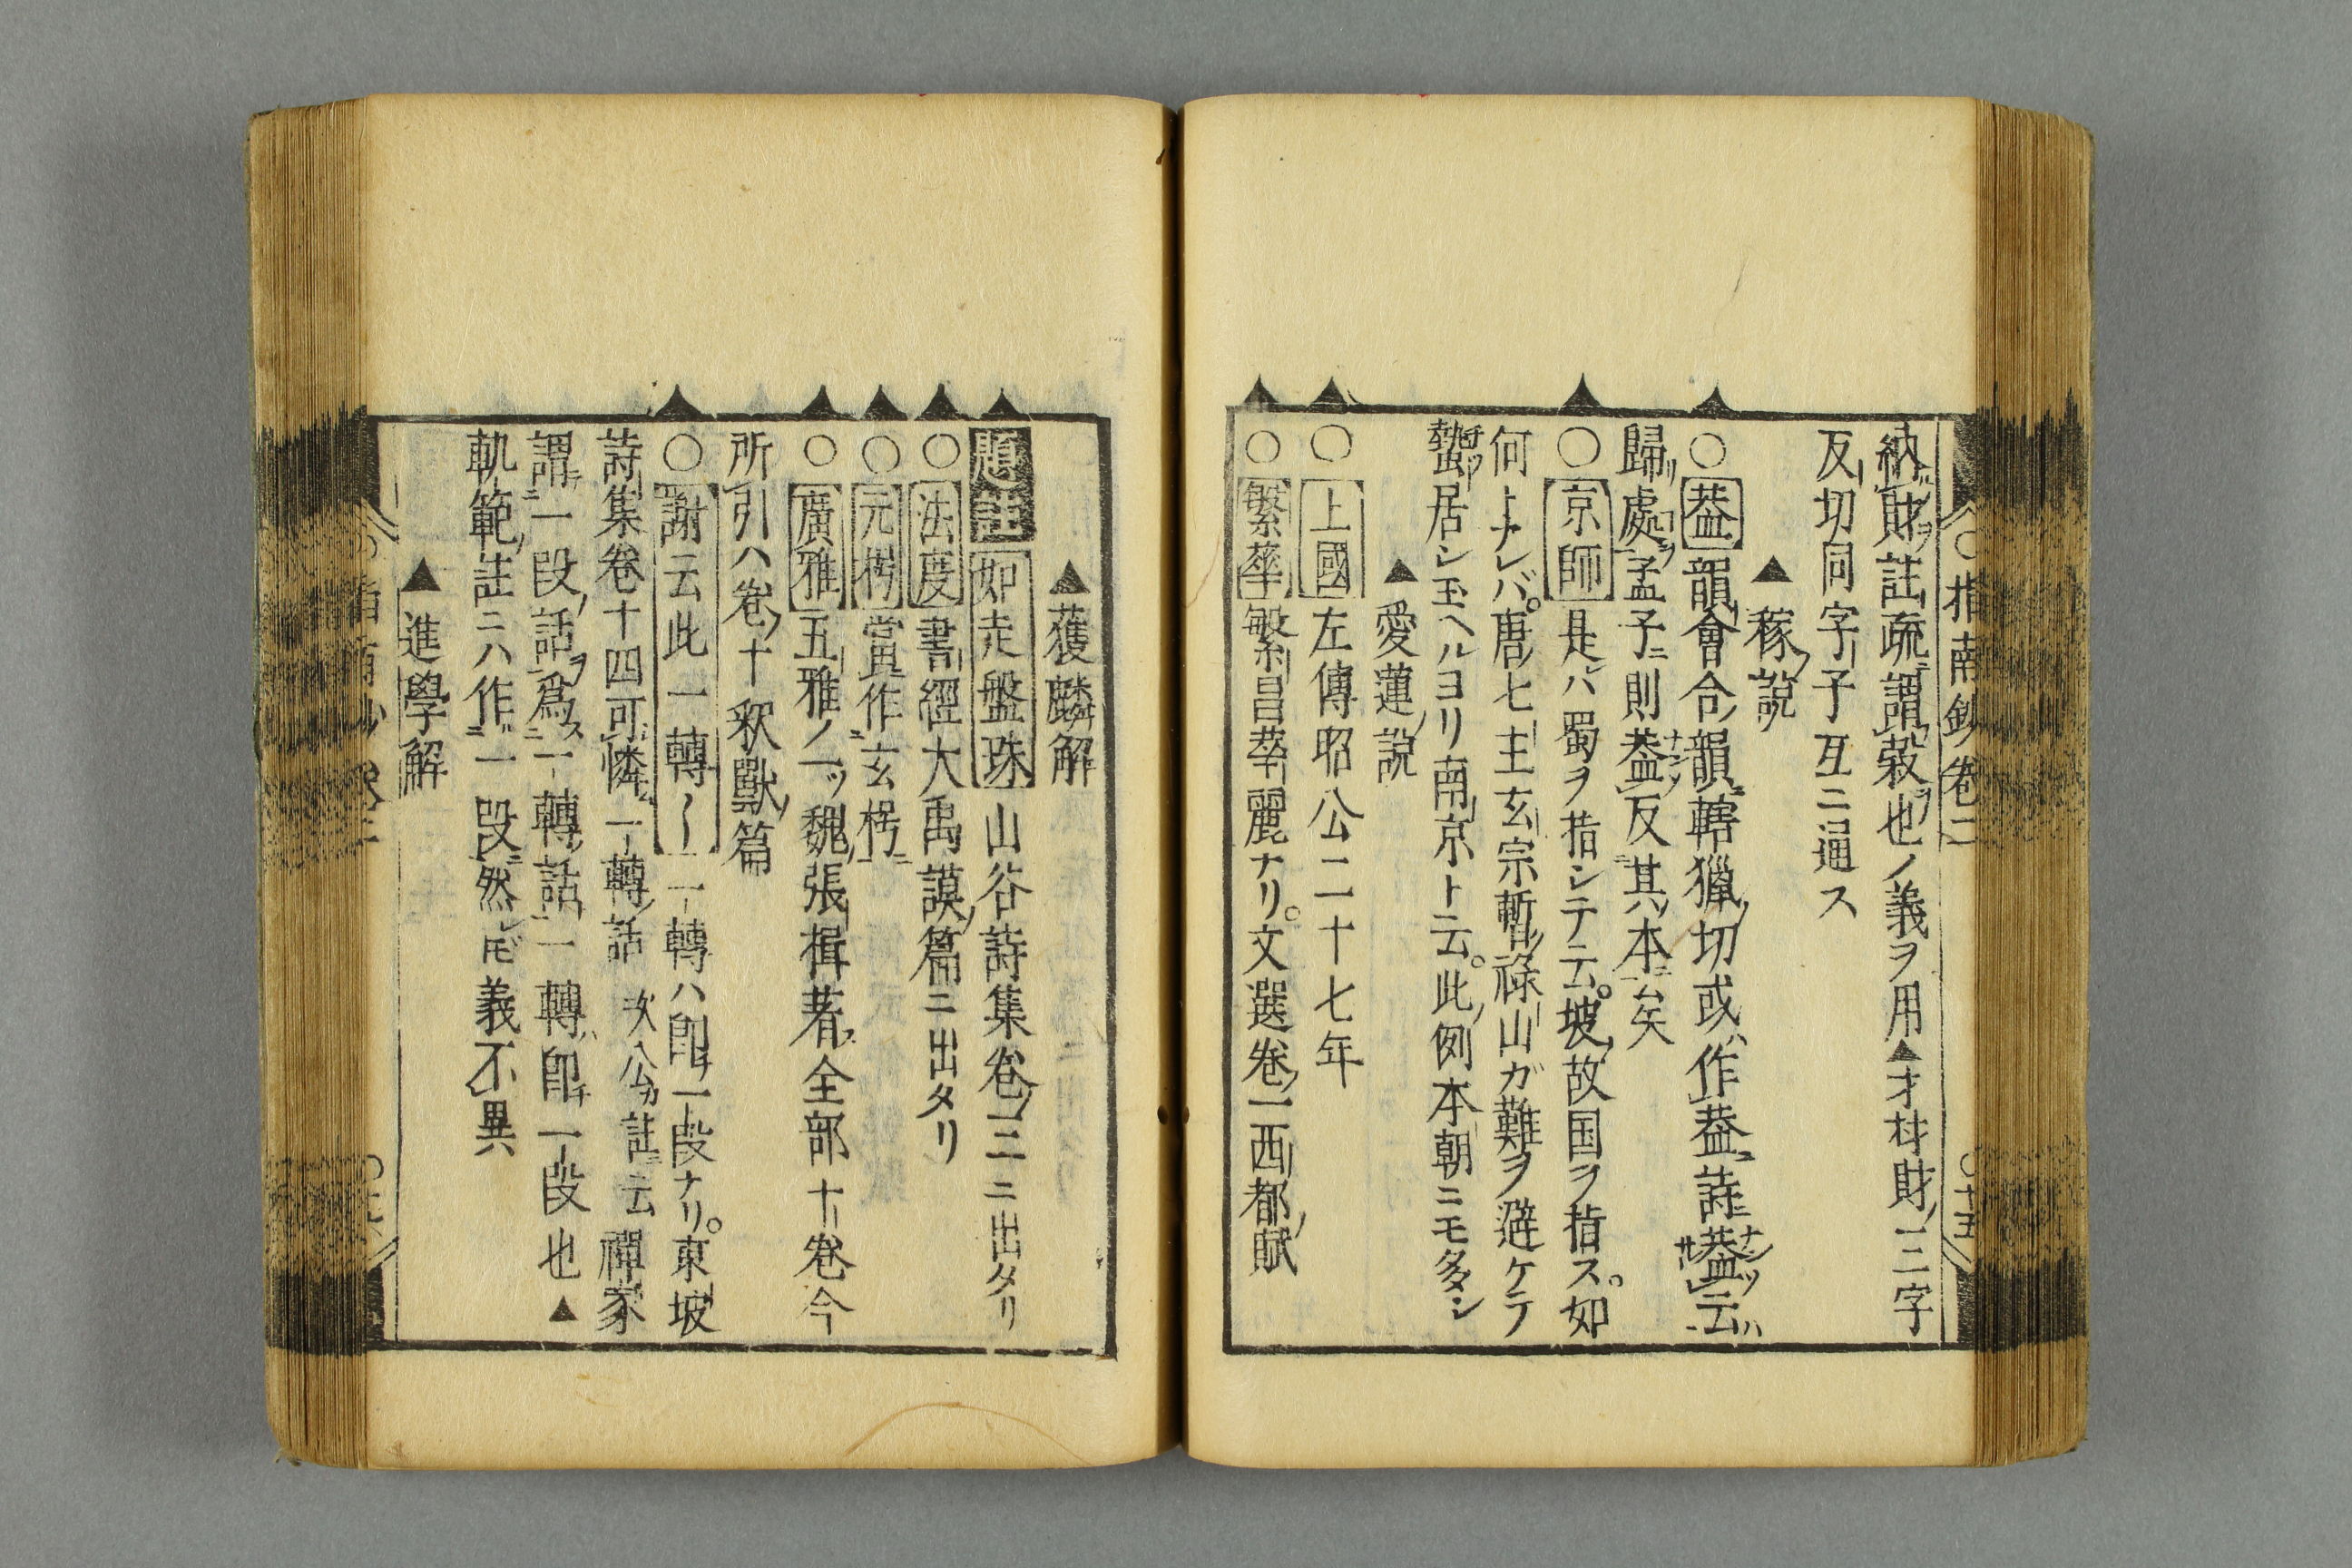 ○指南鈔卷二 ○十五
納財註疏謂穀也ノ義ヲ用▲才材財三字
反切同字子互ニ通ス
▲稼說
○葢 韻會合韻轄獵切或作葢註葢云
歸處孟子則葢反其本矣
○京師 是ハ蜀ヲ指シテ云。坡故国ヲ指ス。如
何トナレバ。唐七主玄宗暫祿山ガ難ヲ避ケテ
蟄居シ玉ヘルヨリ南京ト云。此例本朝ニモ多シ
▲愛蓮說
○上國 左傳昭公二十七年
○繁華 繁昌華麗ナリ。文選卷一西都賦
▲獲麟解
題註 如走盤珠 山谷詩集卷三ニ出タリ
○法度 書經大禹謨篇ニ出タリ
○元枵 當作玄枵
○廣雅 五雅ノ一ツ魏張揖著全部十卷今
所引ハ卷十釈獸篇
○謝云此一轉〳〵 一轉ハ即一段ナリ。東坡
詩集卷十四可憐一轉話 次公註云禪家
謂一段話爲一轉話一轉即一段也▲
軌範註ニハ作一段然ㇾ𪜈義不異
▲進學解